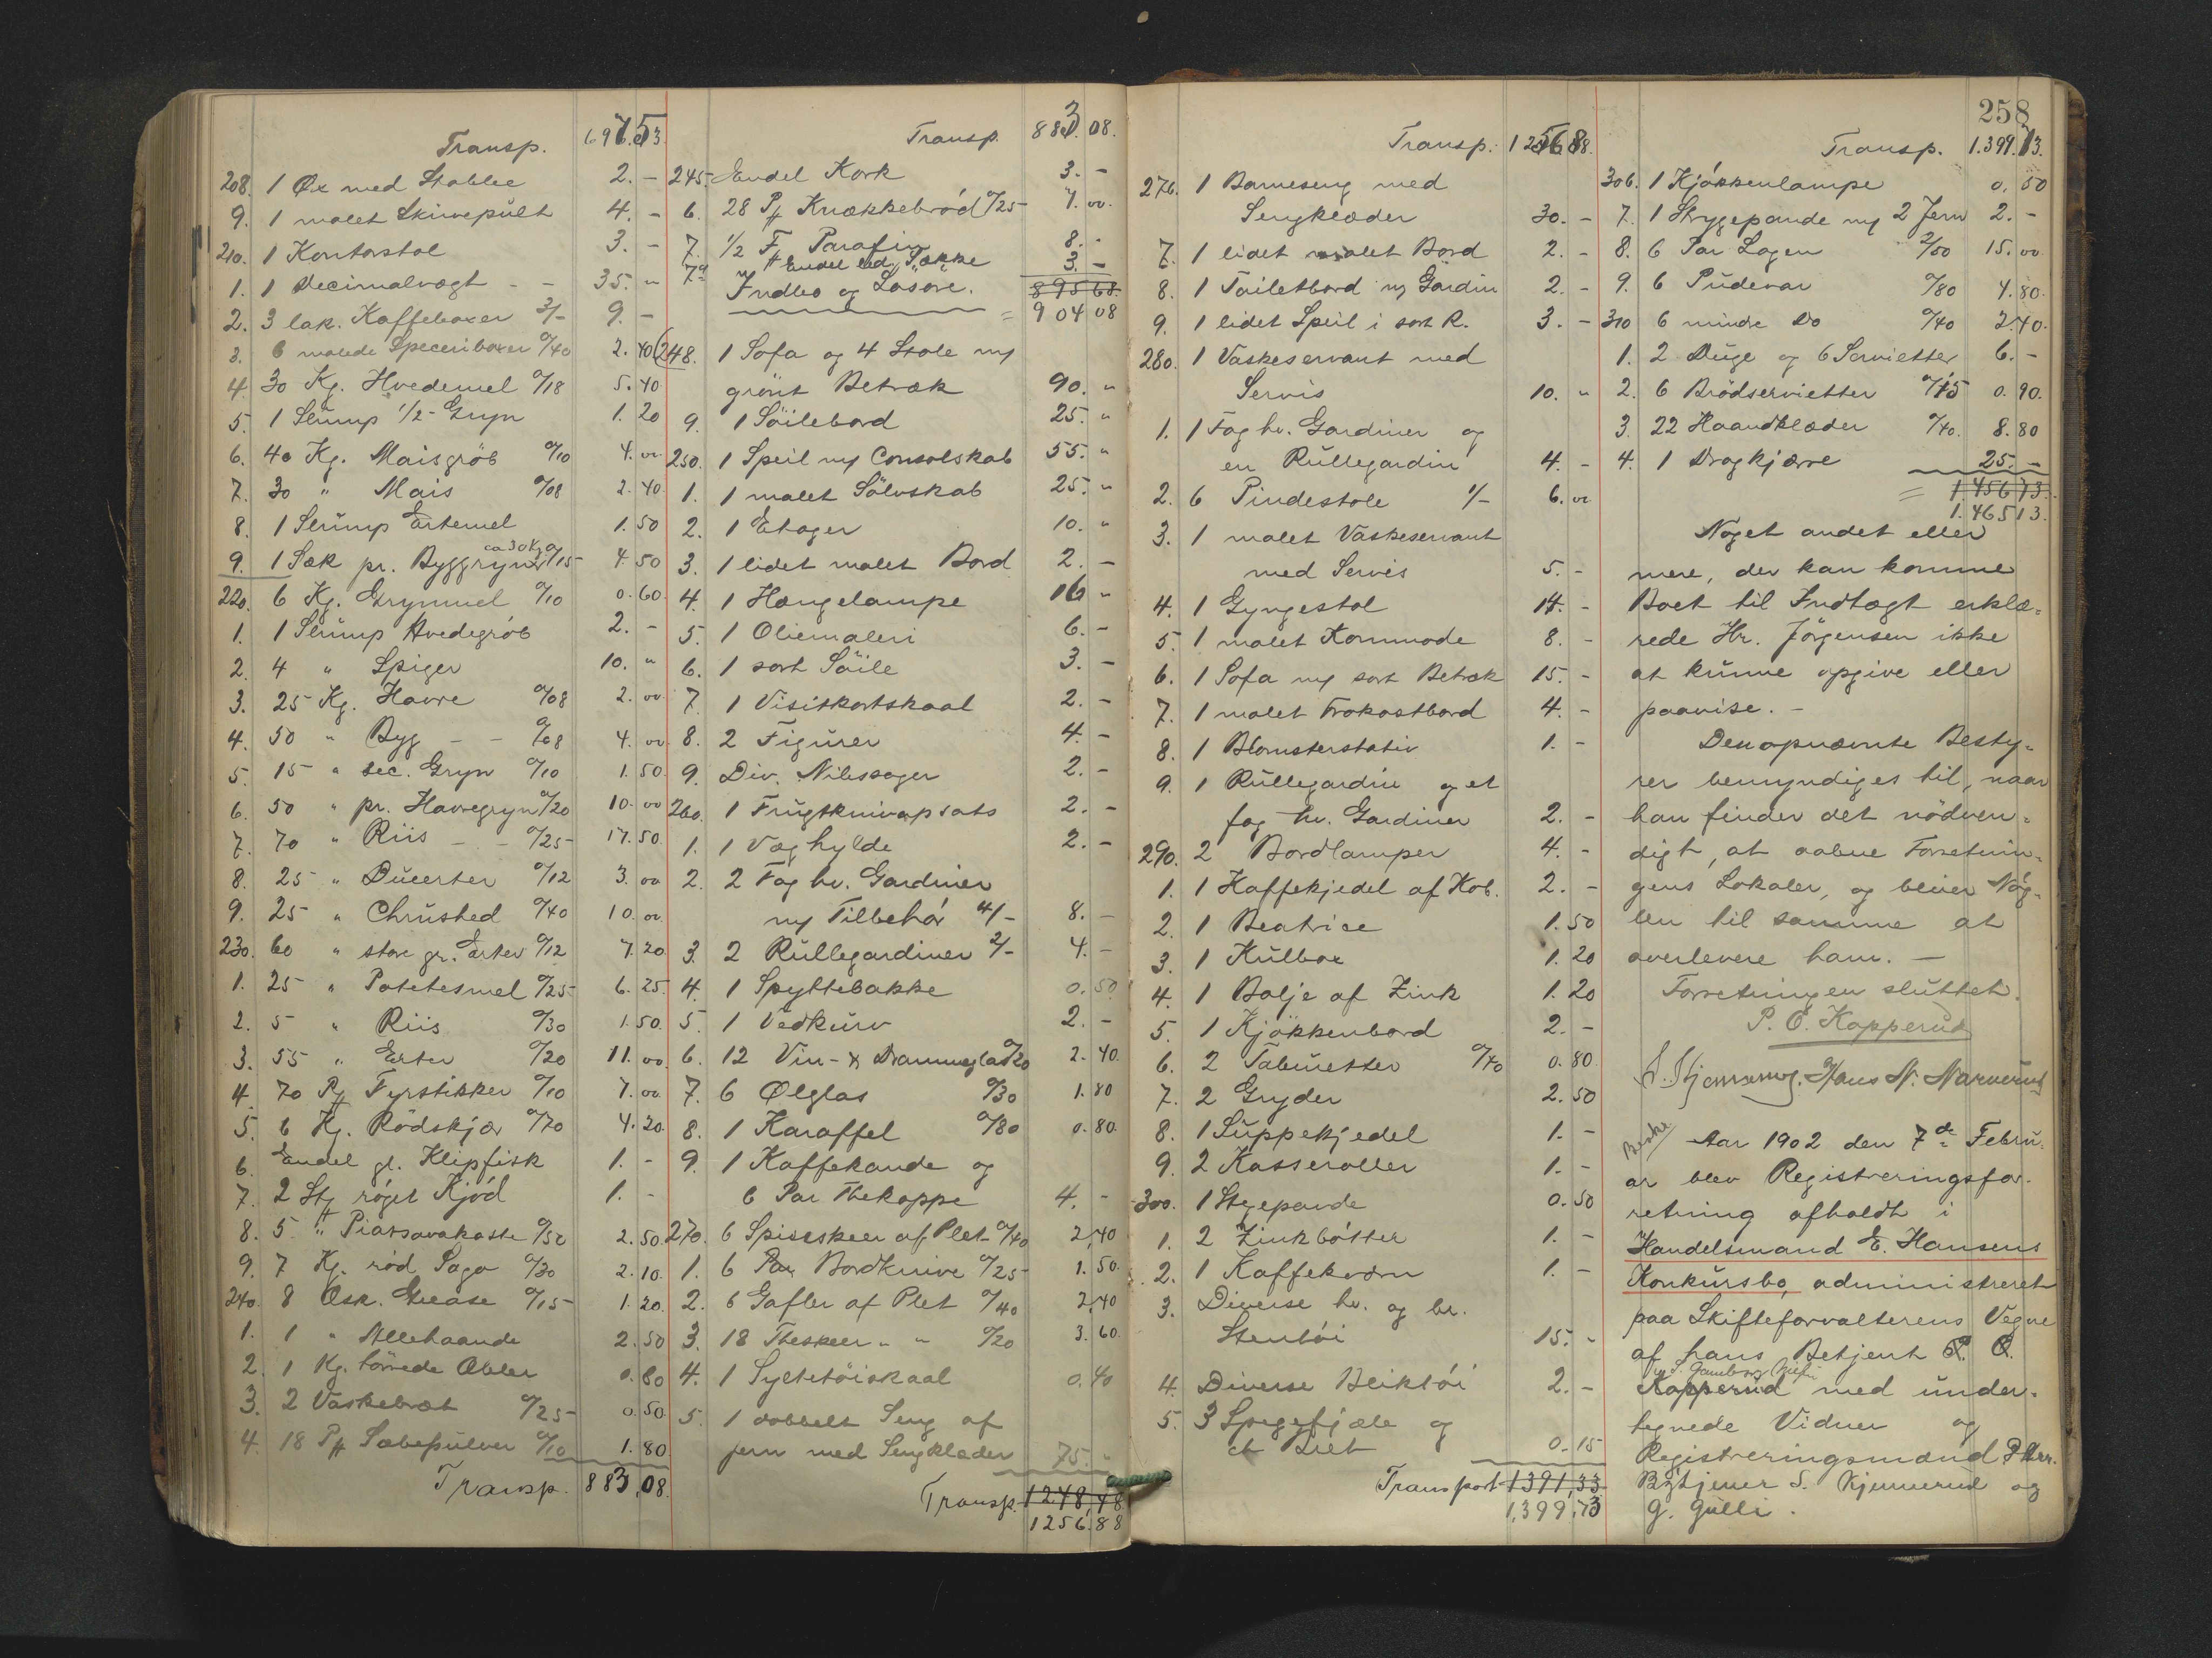 Transp.
208. 1 Øx med Stabbe 2. -
9. 1 malet Skrivepült 4. -
210. 1 Kontorstol 3. -
1. 1 Decimalvægt - - 35. "
2. 3 lak. Kaffeboxer 3/- 9. -
3. 6 malede Speceriboxer 0/40 2.40
4. 30 Kg. Hvedemel 0/18 5.40
5. 1 Slump 1/2- Gryn 1.20
6. 40 Kg. Maisgröb 0/10 4.00
7. 30 " Mais 0/08 2.40
8. 1 Slump Ertemel 1.50
ca 30 Kg
9. 1 Sæk pr. Byggryn 0/15 4.50
220. 6 Kg. Grynmel 0/10 0.60
1. 1 Slump Hvedegröb 2. -
2. 4 " Spiger 10. "
3. 25 Kg. Havre 0/08 2.00
4. 50 " Byg - - 0/08 4.00
5. 15 " sec. Gryn 0/10 1.50
6. 50 " pr. Havregryn 0/20 10.00
7. 70 " Riis - - 0/25 17.50
8. 25 " Düerter 0/12 3.00
9. 25 " Chrushed 0/40 10.00
230. 60 " store gr. Erter 0/12 7.20
1. 25 " Potetesmel 0/25 6.25
2. 5 " Riis 0/30 1.50
3. 55 " Erter 0/20 11.00
4. 70 Pk Fyrstikker 0/10 7.00
5. 6 Kg. Rödskjær 0/70 4.20
6. Endel gl. Klipfisk 1. -
7. 2 Stk röget Kjöd 1. -
8. 5 " Piassavakoste 0/50 2.50
9. 7 Kg. röd Sago 0/30 2.10
240. 8 Æsk. Grease 0/15 1.20
1. 1 " Allehaande 2.50
2. 1 Kg. törrede Æbler 0.80
3. 2 Vaskebræt 0/25 0.50
4. 18 Pk Sæbepulver 0/10 1.80
Transp. 883,08
Transp. 883.08.
245. Endel Kork 3. -
6. 28 Pk Knækkebröd 0/25 7.00
7. 1/2 F. Parafin 8. -
7a Endel led. Sække 3. -
Indbo og Lösöre. 895 68
= 904 08
248. 1 Sofa og 4 Stole m/
grönt Betræk 90. "
9. 1 Söilebord 25. "
250. 1 Speil m/ Consolskab 55. "
1. 1 malet Sölvskab 25. "
2. 1 Etager 10. "
3. 1 lidet malet Bord 2. -
4. 1 Hængelampe 16 "
5. 1 Oliemaleri 6. -
6. 1 sort Söile 3. -
7. 1 Visitkortskaal 2. -
8. 2 Figürer 4. -
9. Div. Nipssager 2. -
260. 1 Frugtknivopsats 2. -
1. 1 Væghylde 2. -
2. 2 Fag hv. Gardiner
m/ Tilbehör 4/- 8. -
3. 2 Rullegardiner 2/- 4. -
4. 1 Spyttebakke 0.50
5. 1 Vedkürv 2. -
6. 12 Vin- & Dramme glas 0/20 2.40.
7. 6 Ølglas 0/30 1.80
8. 1 Karaffel 0/80 0.80.
9. 1 Kaffekande og
6 Par Thekoppe 4. -
270. 6 Spiseskeer af Plet 0/40 2,40
1. 6 Par Bordknive 0/25 1.50.
2. 6 Gafler af Plet 0/40 2,40
3. 18 Theskeer " " 0/20 3.60.
4. 1 Syltetöiskaal 0.40
5. 1 dobbelt Seng af
jern med Sengklæder 75. "
Transp. 1248,48
1256.88
Transp.
276. 1 Barneseng med
Sengklæder 30. -
7. 1 lidet malet Bord 2. -
8. 1 Toiletbord m/ Gardin 2. -
9. 1 lidet Speil i sort R. 3. -
280. 1 Vaskeservant med
Servis 10. "
1. 1 Fag hv. Gardiner og
en Rullegardin 4. -
2. 6 Pindestole 1/- 6.00
3. 1 malet Vaskeservant
med Servis 5. -
4. 1 Gyngestol 14. -
5. 1 malet Kommode 8. -
6. 1 Sofa m/ sort Betræk 15. -
7. 1 malet Frokostbord 4. -
8. 1 Blomsterstativ 1. -
9. 1 Rullegardin og et
fag hv. Gardiner 2. -
290. 2 Bordlamper 4. -
1. 1 Kaffekjedel af Kob. 2. -
2. 1 Beatrice 1.50
3. 1 Kulbox 1.20
4. 1 Balje af Zink 1.20
5. 1 Kjökkenbord 2. -
6. 2 Tabüretter 0/40 0.80.
7. 2 Gryder 2.50
8. 1 Süppekjedel 1. -
9. 2 Kasseroller 1. -
300. 1 Stegepande 0.50
1. 2 Zinkbötter 1. -
2. 1 Kaffekværn 1. -
3. Diverse hv. og br.
Stentöi 15. -
4. Diverse Bliktöi 2. -
5. 3 Spegefjæle og
et 0.15
Transport 1391,33
1,399,73
258
Transp. 1.399.73.
306. 1 Kjökkenlampe 0.50
7. 1 Strygepande m/ 2 Jern 2. -
8. 6 Par Lagen 2/50 15.00
9. 6 Püdevar 0/80 4.80.
310 6 mindre Do 0/40 2.40.
1. 2 Duge og 6 Servietter 6. -
2. 6 Brödservietter 0/15 0.90.
3. 22 Haandklæder 0/40. 8.80
4. 1 Dragkjærre 25. -
= 1.456 73.
1.465 13.
Noget andet eller
mere, der kan komme
Boet til Indtægt erklæ-
rede Hr. Jörgensen ikke
at künne opgive eller
paavise. -
Den opnævnte Besty-
rer bemyndiges til, naar
han finder det nödven-
digt, at aabne Forretnin-
gens Lokaler, og bliver Nög-
len til samme at
overlevere ham. -
Forretningen slüttet.
P. O. Kopperud
Hans N. Narverud
Aar 1902 den 7de Febru-
ar blev Registreringsfor-
retning afholdt i
Handelsmand E. Hansens
Konkursbo, administreret
paa Skifteforvalterens Vegne
af hans Betjent P. O.
Kopperud med under-
tegnede Vidner og
Registreringsmænd
S. Kjemmerud og
G. Gulli.